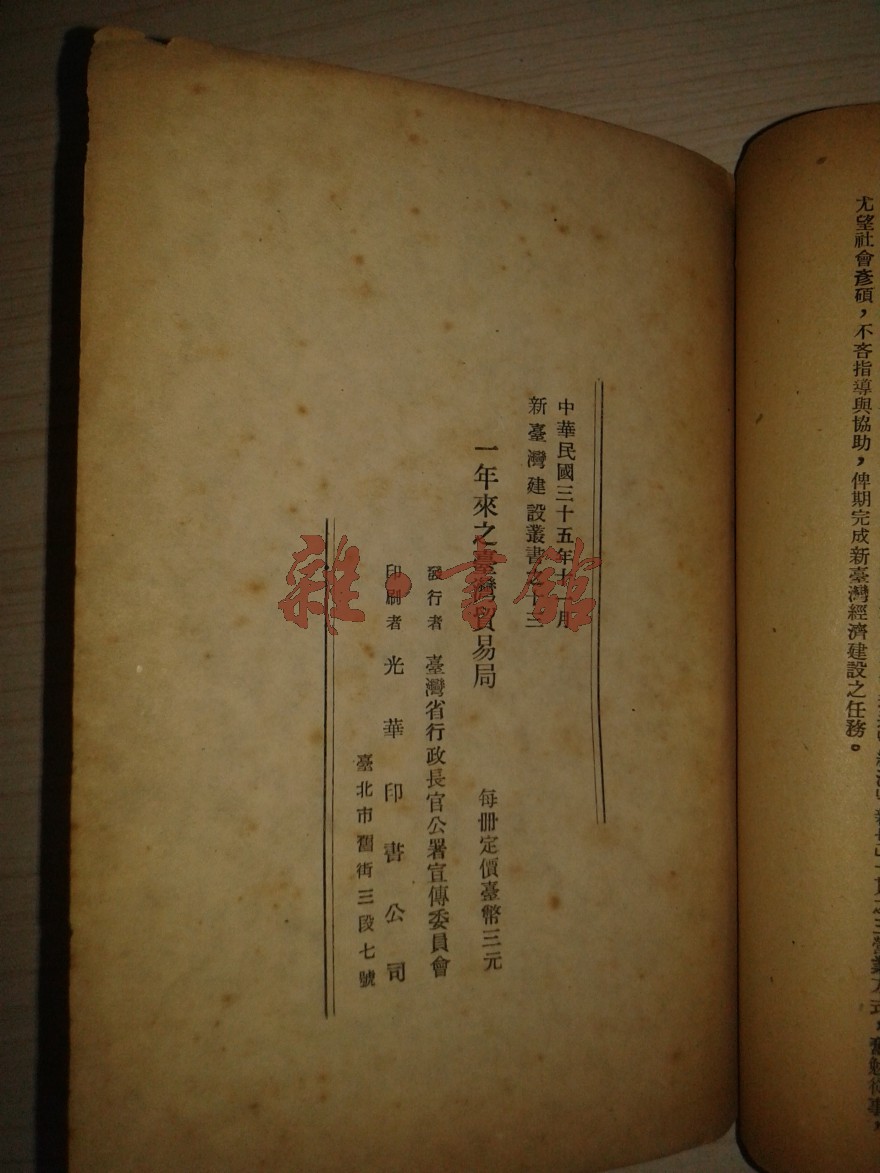 尤望社會彥碩，不吝指導與協助，俾期完成新臺灣經濟建設之任務。
中華民國三十五年十一月
新臺灣建設叢書之十三
一年來之臺灣貿易局
每冊定價臺幣三元
發行者 臺灣省行政長官公署宣傳委員會
印刷者 光華印書公司
臺北市舊街三段七號
雜·書館